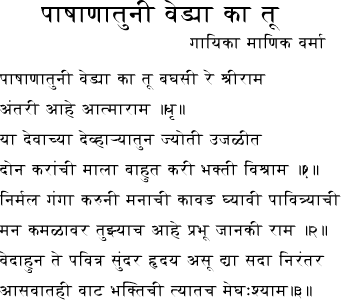 पाषाणातुनी वेड्या का तू
गायिका माणिक वर्मा
पाषाणातुनी वेड्या का तू बघसी रे श्रीराम
अंतरी आहे आत्माराम ॥धृ॥
या देवाच्या देव्हाऱ्यातुन ज्योती उजळीत
दोन करांची माला बाहुत करी भक्ती विश्राम ॥१॥
निर्मल गंगा करुनी मनाची कावड घ्यावी पावित्र्याची
मन कमळावर तुझ्याच आहे प्रभू जानकी राम ॥२॥
वेदाहुन ते पवित्र सुंदर हृदय असू द्या सदा निरंतर
आसवातही वाट भक्तिची त्यातच मेघःश्याम॥३॥